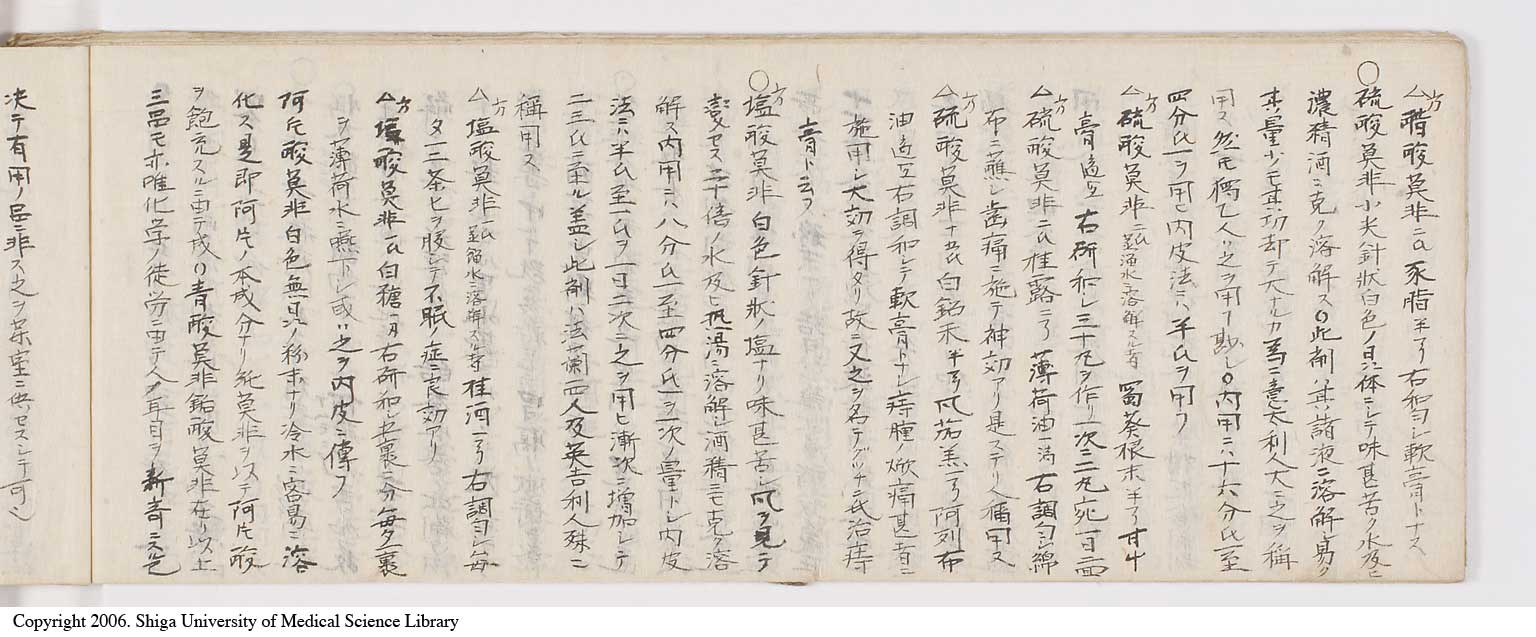 △方 醋酸莫非二氏 豕脂半了 右和匀シ軟膏トナス
○硫酸莫非小尖針状白色ノ晶体ニシテ味甚苦ク水及ヒ
濃精酒ニ克ク溶解ス○此剤其諸液ニ溶解シ易ク
其量少ノモ其功却テ大ナルカ為ニ意太利人大ニ之ヲ称
用ス然モ獨乙人ハ之ヲ用フ尠シ○内用ニハ十六分氏至
四分氏一ヲ用ヒ内皮法ニハ半氏ヲ用フ
△方 硫酸莫非二氏 溜水ニ溶解スル寺 蜀葵根末半了 甘艸
膏適宜 右研和シ三十丸ヲ作リ一次ニ二丸宛一日二面
△方 硫酸莫非二氏 桂露二了 薄荷油一滴 右調匀シ綿
布ニ蘸シ歯痛ニ施テ神効アリ是ステリ人偁用ス
△方 硫酸莫非十五氏 白鉛末半了 莨菪羔一了 阿列布
油適宜 右調和シテ軟膏トナシ痔腫ノ焮痛甚者ニ
施用シ大効ヲ得タリ故ニ又之ヲ名テグッチニ氏治痔
膏ト云フ
○方 塩酸莫非白色針状ノ塩ナリ味甚苦シ風ヲ見テ
変セス二十倍ノ水及ヒ熱湯ニ溶解シ酒精ニモ克ク溶
解ス内用ニハ八分氏一至四分氏一ヲ一次ノ量トシ内皮
法ニハ半氏至一氏ヲ一日二次ニ之ヲ用ヒ漸次ニ増加シテ
二三氏ニ至ル盖シ此剤ハ法蘭西人及英吉利人殊ニ
称用ス
△方 塩酸莫非一氏 溜水ニ溶解スル寺 桂河一了 右調匀シ毎
夕一二茶ヒヲ服シテ不眠症ニ良効アリ
△方 塩酸莫非一氏 白糖一刄 右研和シ五裹ニ分毎夕一裹
ヲ薄荷水ニ嚥下シ或ハ之ヲ内皮ニ傳フ
阿片酸莫非白色無晶ノ粉末ナリ冷水ニ容易ニ溶
化ス是即阿片ノ本成分ナリ純莫非ヲ以テ阿片酸
ヲ飽充スルニ由テ成リ○青酸莫非鉛酸莫非在リ以上
三品モ亦唯化学ノ徒労ニ由テ人ノ耳目ヲ新奇ニスルモ
决テ有用ノ品ニ非ス之ヲ薬室ニ供セスシテ可ヘ
Copyright 2006. Shiga University of Medical Science Library